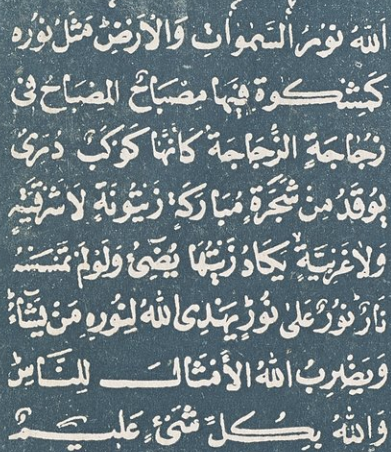 الله نور السموات والأرض مثل نوره
كمشكوة فيها مصباح المصباح في
زجاجة الزجاجة كأنها كوكب درى
يوقد من شجرة مباركة زيتونة لا شرقية
ولا غربية يكاد زيتها يضئ ولو لم تمسسه
نار نور على نور يهدى الله لنوره من يشاء
ويضرب الله الأمثال للناس
والله بكل شئ عليم